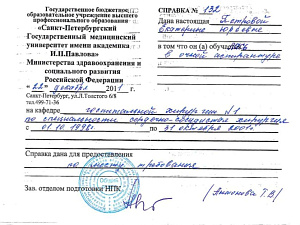 Государственное бюджетное
образовательное учреждение высшего
профессионального образования
«Санкт-Петербургский
Государственный медицинский
университет имени академика
И.П.Павлова»
Министерства здравоохранения и
социального развития
Российской Федерации
«22» декабря 2011 г
Санкт-Петербург, ул.Л.Толстого 6/8
тел.499-71-56
СПРАВКА № 132
Дана настоящая Петровой
Екатерине Юрьевне
в том что он (а) обучалась
в очной аспирантуре
на кафедре госпитальной хирургии N1
по специальности сердечно-сосудистая хирургия
с 01.10.1998г. по 31 октября 2001г.
Справка дана для предоставления
по месту требования
Зав. отделом подготовки НПК